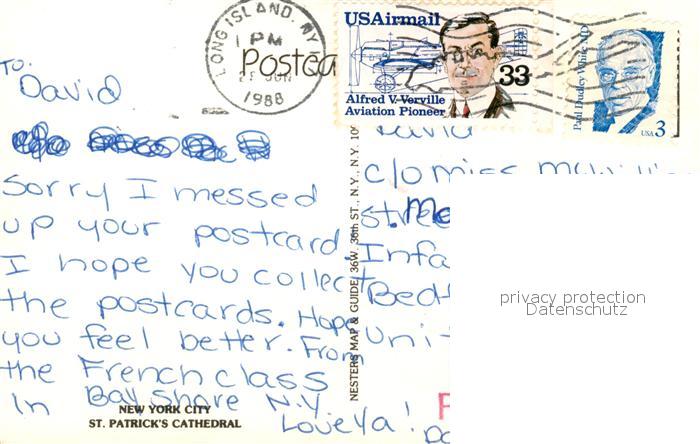 LONG ISLAND, NY
1 PM
JUN
1988
Postca
USAirmail
33
Alfred V. Verville
Aviation Pioneer
Paul Dudley White MD
USA 3
TO:
David
Sorry I messed
up your postcard.
I hope you collect
the postcards. Hope
you feel better. From
the French class
In Bay Shore N.Y.
Love Ya!
NEW YORK CITY
ST. PATRICK'S CATHEDRAL
NESTERS MAP & GUIDE, 36W. 36th ST., N.Y., N.Y. 10
David
c/o miss
stree
Infa
Bed
Uni
privacy protection
Datenschutz